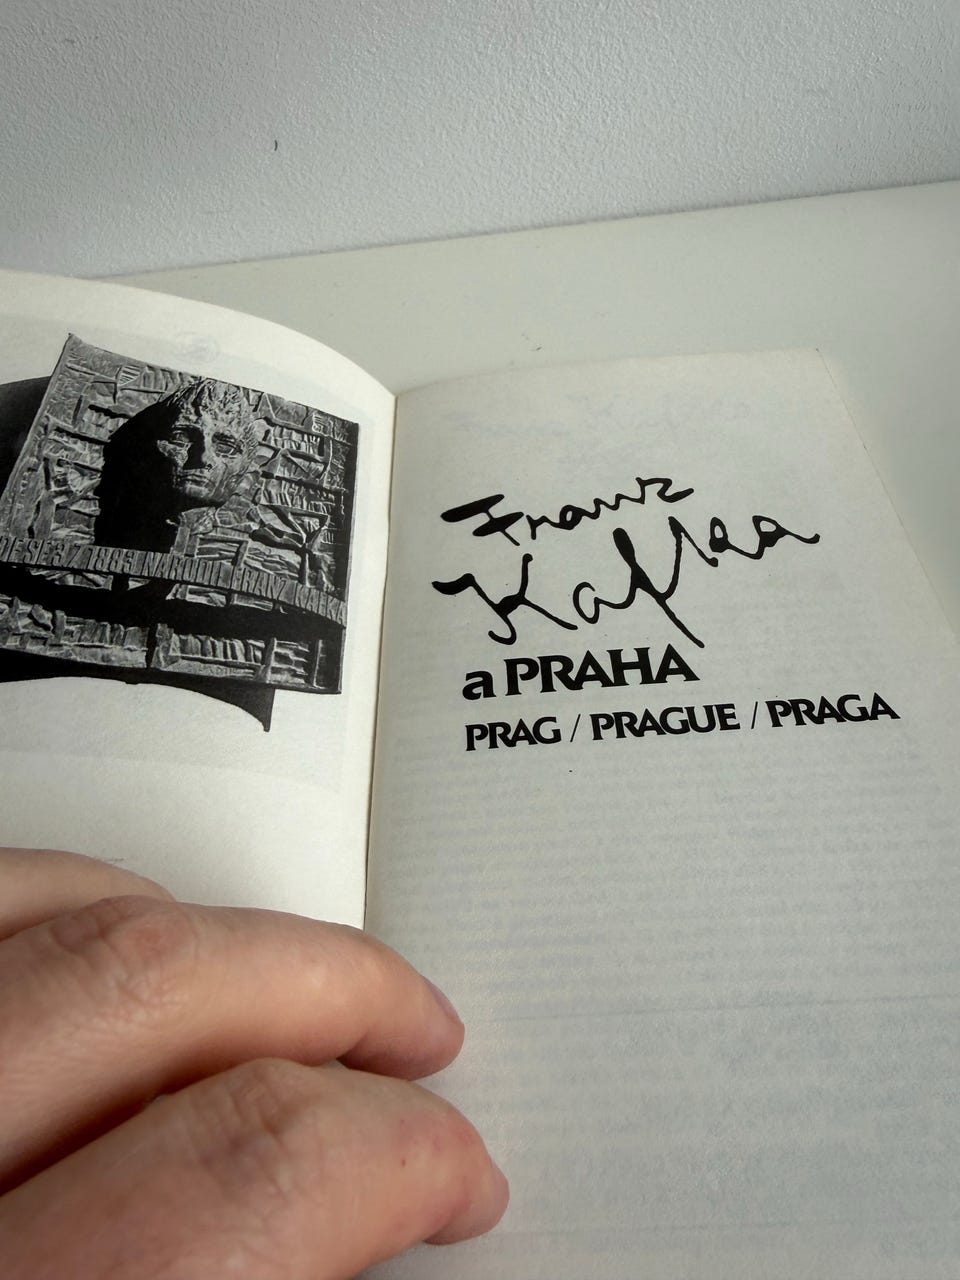 DE SE 3 7 1883 NARODIL FRANZ KAFKA
Franz
Kafka
a PRAHA
PRAG / PRAGUE / PRAGA